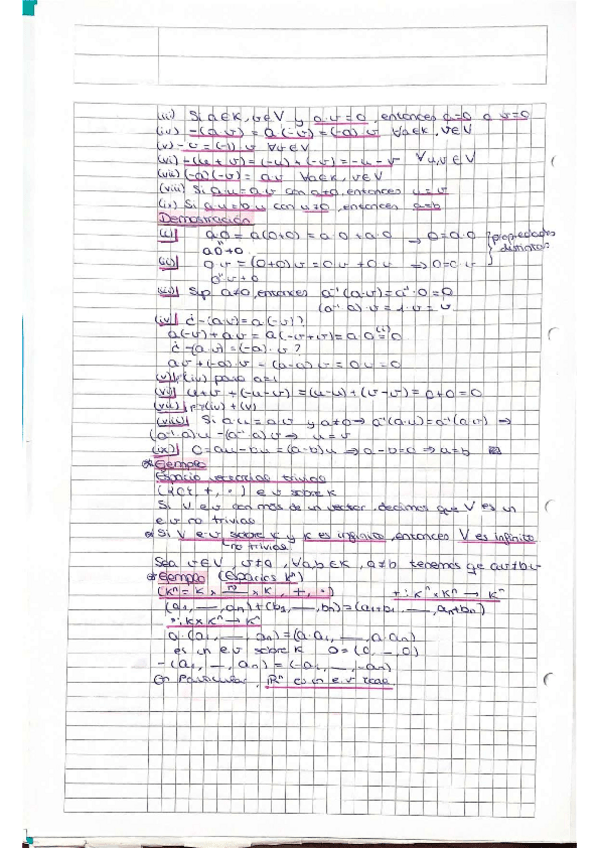 (iii) Si a∈K, v∈V y a·v=0, entonces a=0 o v=0
(iv) -(a·v) = a·(-v) = (-a)·v ∀a∈K, v∈V
(v) -v = (-1)·v ∀v∈V
(vi) -(u+v) = (-u)+(-v) = -u-v ∀u,v∈V
(vii) (-a)(-v) = a·v ∀a∈K, v∈V
(viii) Si a·u = a·v con a≠0, entonces u=v
(ix) Si a·u = b·u con u≠0, entonces a=b
Demostración
(i) a·0 = a(0+0) = a·0+a·0 → 0=a·0 propiedades distintas
a0+0
(ii) 0·v = (0+0)v = 0v+0v → 0=0·v
0·v+0
(iii) Sup a≠0, entonces a⁻¹(a·v)=a⁻¹·0=0
(a⁻¹·a)·v = 1·v = v
(iv) ¿-(a·v)=a·(-v)?
a(-v)+av = a(-v+v) = a·0 =(i) 0
¿-(a·v) = (-a)·v?
av+(-a)v = (a-a)v = 0v = 0
(v) (iv) para a=1
(vi) u+v+(-u-v) = (u-u)+(v-v) = 0+0 = 0
(vii) (iv)+(v)
(viii) Si a·u = a·v y a≠0 → a⁻¹(a·u) = a⁻¹(a·v) →
(a⁻¹·a)u = (a⁻¹·a)v → u=v
(ix) 0=au-bu=(a-b)u ⇒ a-b=0 ⇒ a=b
Ejemplo
Espacio vectorial trivial
({0}, +, ·) e.v sobre K
Si V e.v con más de un vector, decimos que V es un
e.v no trivial
Si V e.v sobre K y K es infinito, entonces V es infinito
no trivial
Sea v∈V, v≠0, ∀a,b∈K, a≠b tenemos qe av≠bv
Ejemplo (Espacios Kⁿ)
(Kⁿ = K x n x K, +, ·) +: Kⁿ x Kⁿ → Kⁿ
(a₁, —, an)+(b₁, —, bn) = (a₁+b₁, —, an+bn)
·: K x Kⁿ → Kⁿ
a·(a₁, —, an) = (a·a₁, —, a·an)
es un e.v sobre K 0=(0, —, 0)
-(a₁, —, an) = (-a₁, —, -an)
En particular, ℝⁿ es un e.v real.